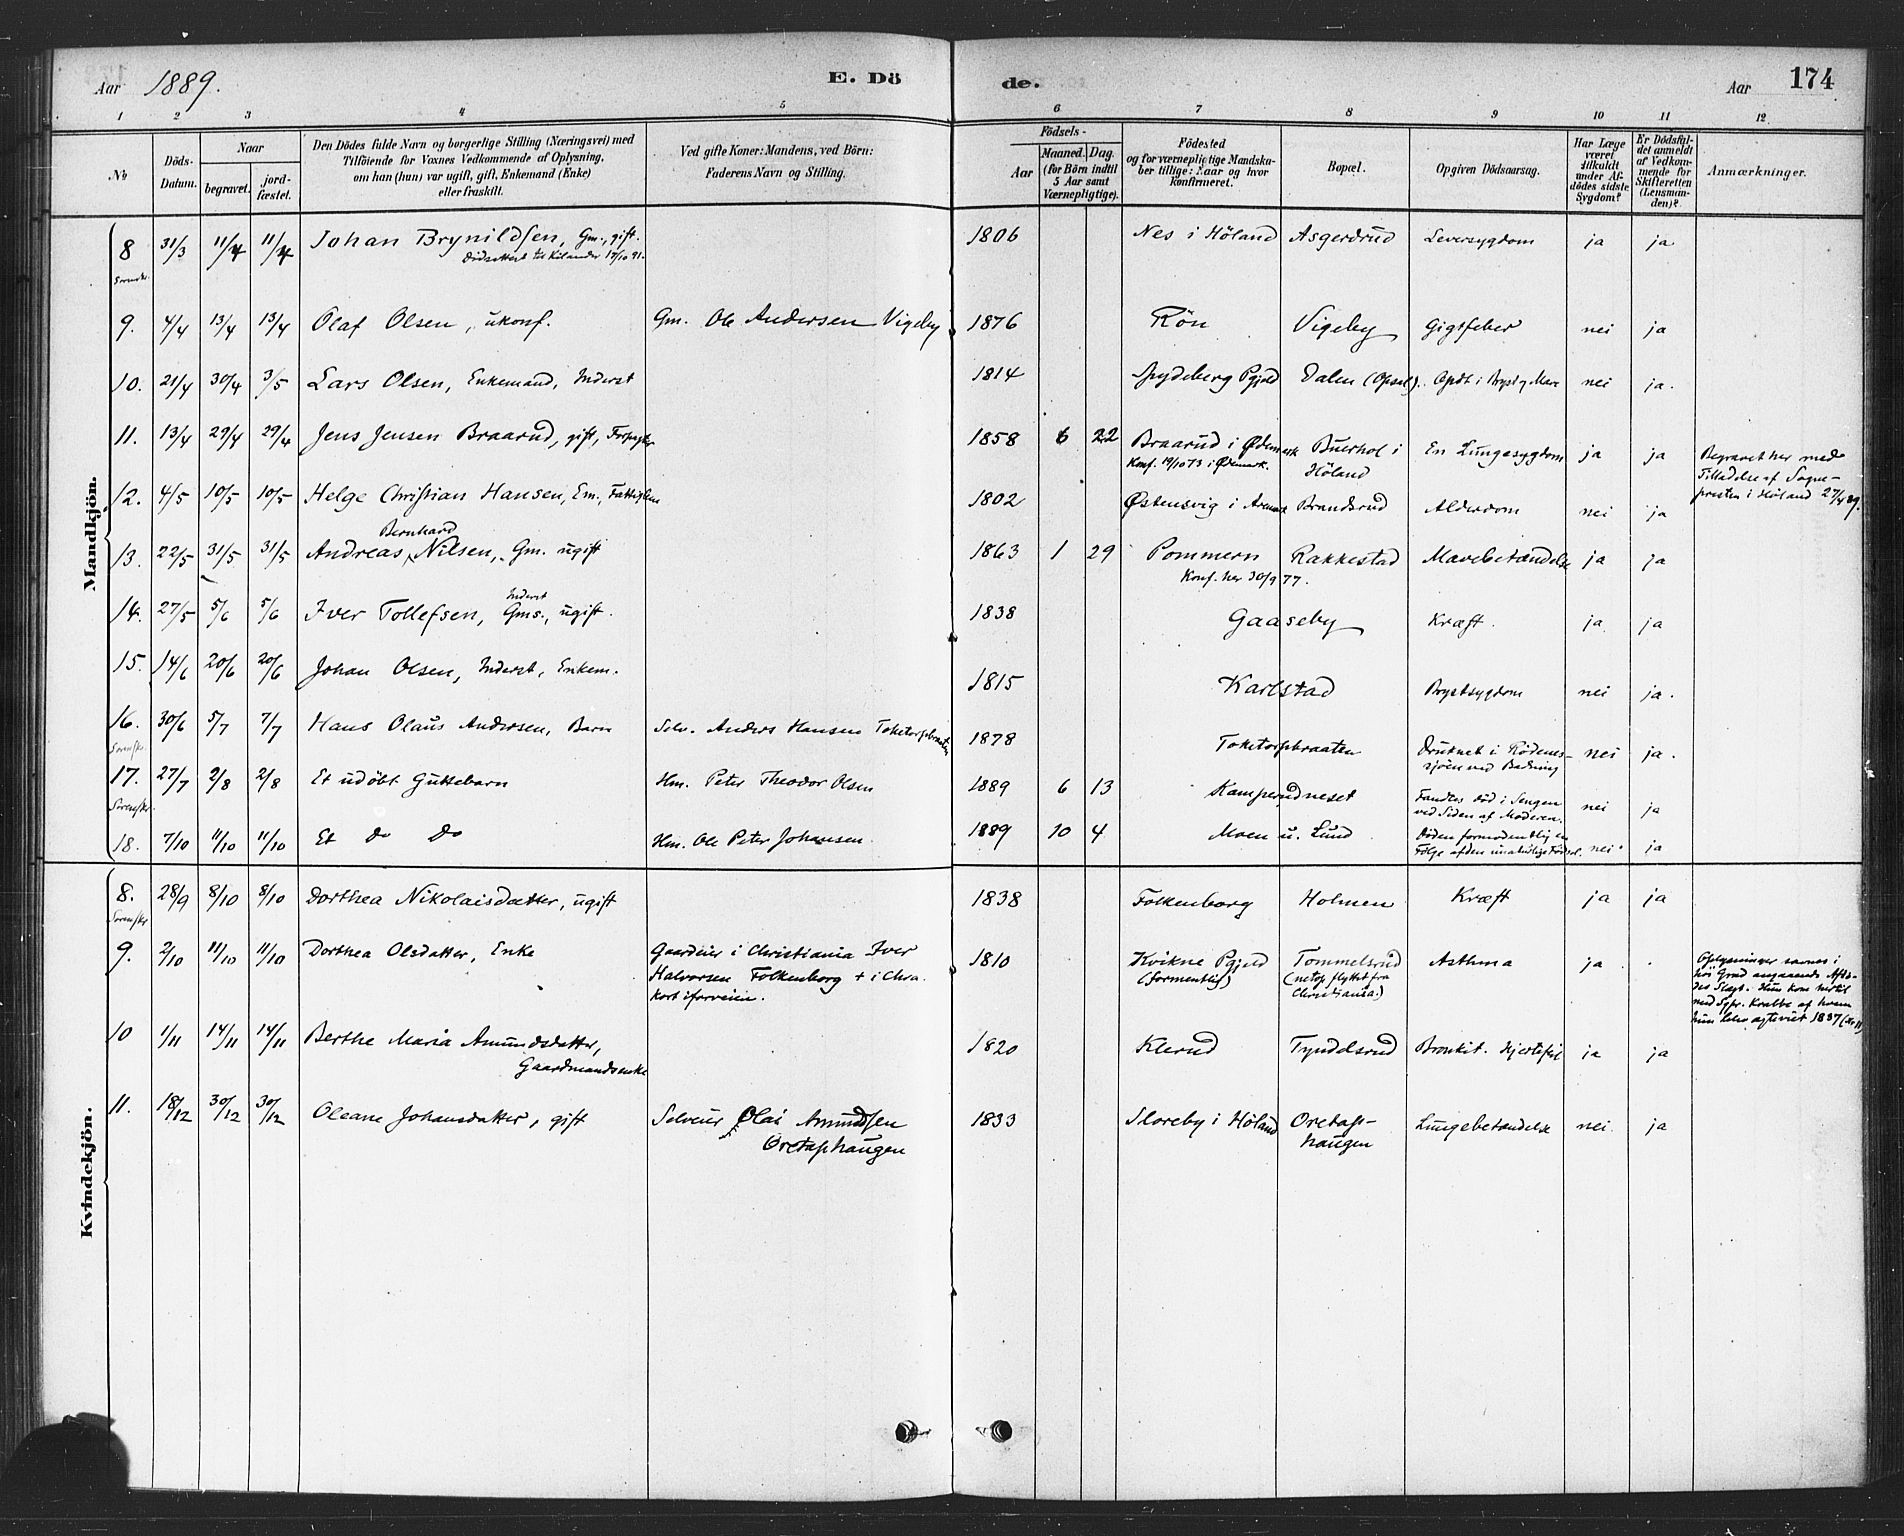 Aar 1889. E. Döde. Aar 174
1 2 3 4 5 6 7 8 9 10 11 12
No
Döds-
Datum.
Naar
begravet.
jord-
fæstet.
Den Dödes fulde Navn og borgerlige Stilling (Næringsvei) med
Tilföiende for Voxnes Vedkommende af Oplysning,
om han (hun) var ugift, gift, Enkemand (Enke)
eller fraskilt.
Ved gifte Koner: Mandens, ved Börn:
Faderens Navn og Stilling.
Födsels-
Aar
Maaned. Dag.
(for Börn indtil
5 Aar samt
Værnepligtige).
Födested
og for værnepligtige Mandska-
ber tillige: Naar og hvor
Konfirmeret.
Bopæl.
Opgiven Dödsaarsag.
Har Læge
været
tilkaldt
under Af-
dödes sidste
Sygdom?
Er Dödsfal-
det anmeldt
af Vedkom-
mende for
Skifteretten
(Lensman-
den)?
Anmærkninger.
Mandkjön.
8 31/3 11/4 11/4 Johan Brynildsen, Gm., gift. 1806 Nes i Höland Asgerdrud Leversygdom ja ja
Dödsattest til Kilander 17/10 91.
9. 4/4 13/4 13/4 Olaf Olsen, ukonf. Gm. Ole Andersen Vigeby 1876 Rön Vigeby Gigtfeber nei ja
10. 21/4 30/4 3/5 Lars Olsen, Enkemand, Inderst 1814 Spydeberg Pgjeld Dalen (Opsal). Opdt i Bryst og Mave nei ja.
11. 13/4 29/4 29/4 Jens Jensen Braarud, gift, Forpagter 1858 6 22 Braarud i Ødemark Buerhol i Höland En Lungesygdom ja ja
Konf. 19/10 73 i Ødemark.
Begravet her med
Tilladelse af Sogne-
presten i Höland 27/4 89.
12. 4/5 10/5 10/5 Helge Christian Hansen, Em., Fattiglem 1802 Østensvig i Aremark Brandsrud Alderdom nei ja
Bernhard
13. 22/5 31/5 31/5 Andreas Nilsen, Gm. ugift 1863 1 29 Pommern Rakkestad Mavebetændelse ja ja
Konf. her 30/9 77.
Inderst
14. 27/5 5/6 5/6 Iver Tollefsen, Gms., ugift. 1838 Gaaseby Kræft. ja ja
15. 14/6 20/6 20/6 Johan Olsen, Inderst, Enkem. 1815 Karlstad Brystsygdom nei ja.
16. 30/6 5/7 7/7 Hans Olaus Andersen, Barn Selv. Anders Hansen Toketorpbraaten 1878 Toketorpbraaten Druknet i Rödenes-
sjöen ved Badning nei ja.
17. 27/7 2/8 2/8 Et udöbt Guttebarn Hm. Peter Theodor Olsen 1889 6 13 Kamperudneset Fandtes död i Sengen
ved Siden af Moderen. nei ja
18. 7/10 11/10 11/10 Et Do Do Hm. Ole Peter Johansen. 1889 10 4 Moen u. Lund Döden formodentlig en
Fölge af den unaturlige Födsel. nei ja
Kvindekjön.
8. 28/9 8/10 8/10 Dorthea Nikolaisdatter, ugift 1838 Folkenborg Holmen Kræft ja ja
9. 2/10 11/10 11/10 Dorthea Olsdatter, Enke Gaardeier i Christiania Iver
Halvorsen Folkenborg + i Chra.
kort iforveien. 1810 Kvikne Pgjeld
(formentlig) Tommelsrud
(netop flyttet fra
Christiania.) Asthma ja
Oplysninger savnes i
höi Grad angaaende Afdö-
des Slægt. Hun kom hertil
10 1/11 14/11 14/11 Berthe Maria Amundsdatter,
Gaardmandsenke 1820 Klerud Tyndelsrud Bronkit. Hjertefeil ja ja
11. 18/12 30/12 30/12 Oleane Johansdatter, gift Selveier Olai Amundsen
Oretaphaugen 1833 Sloreby i Höland Oretap-
haugen Lungebetændelse nei. ja